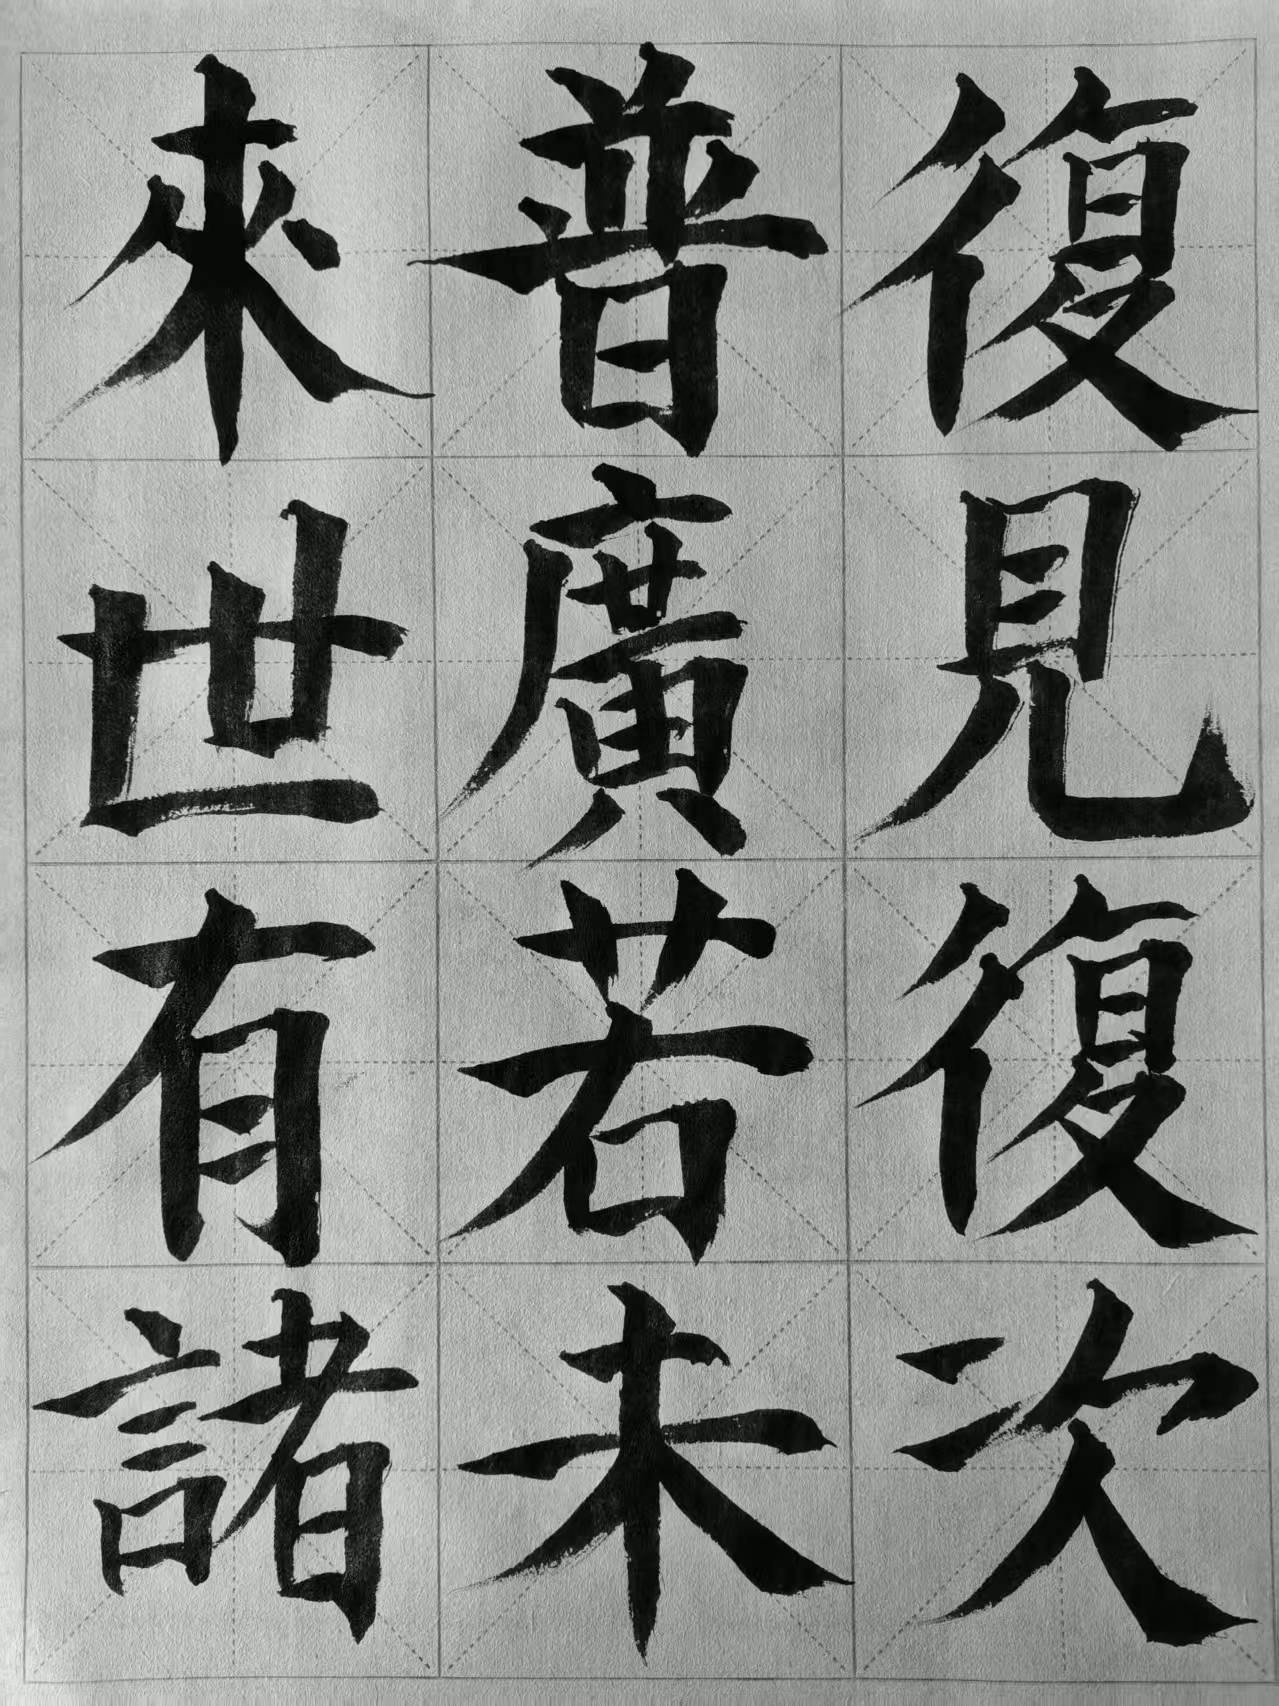 復見復次
普廣若未
來世有諸